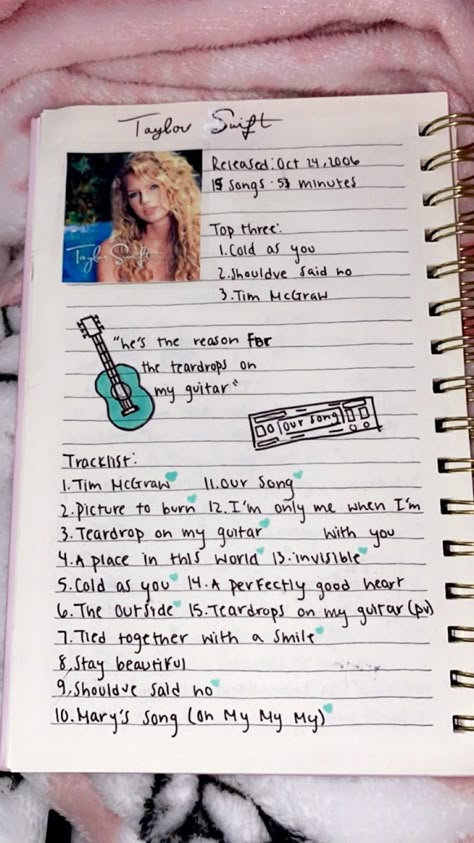 Taylor Swift
Released: Oct 24, 2006
15 songs · 53 minutes
Taylor Swift
Top three:
1. Cold as you
2. Shouldve said no
3. Tim McGraw
"he's the reason for
the teardrops on
my guitar"
our song
Tracklist:
1. Tim McGraw 11. Our Song
2. picture to burn 12. I'm only me when I'm
3. Teardrop on my guitar with you
4. A place in this world 13. invisible
5. Cold as you 14. A perfectly good heart
6. The outside 15. Teardrops on my guitar (pv)
7. Tied together with a smile
8. Stay beautiful
9. Shouldve said no
10. Mary's song (oh My My My)